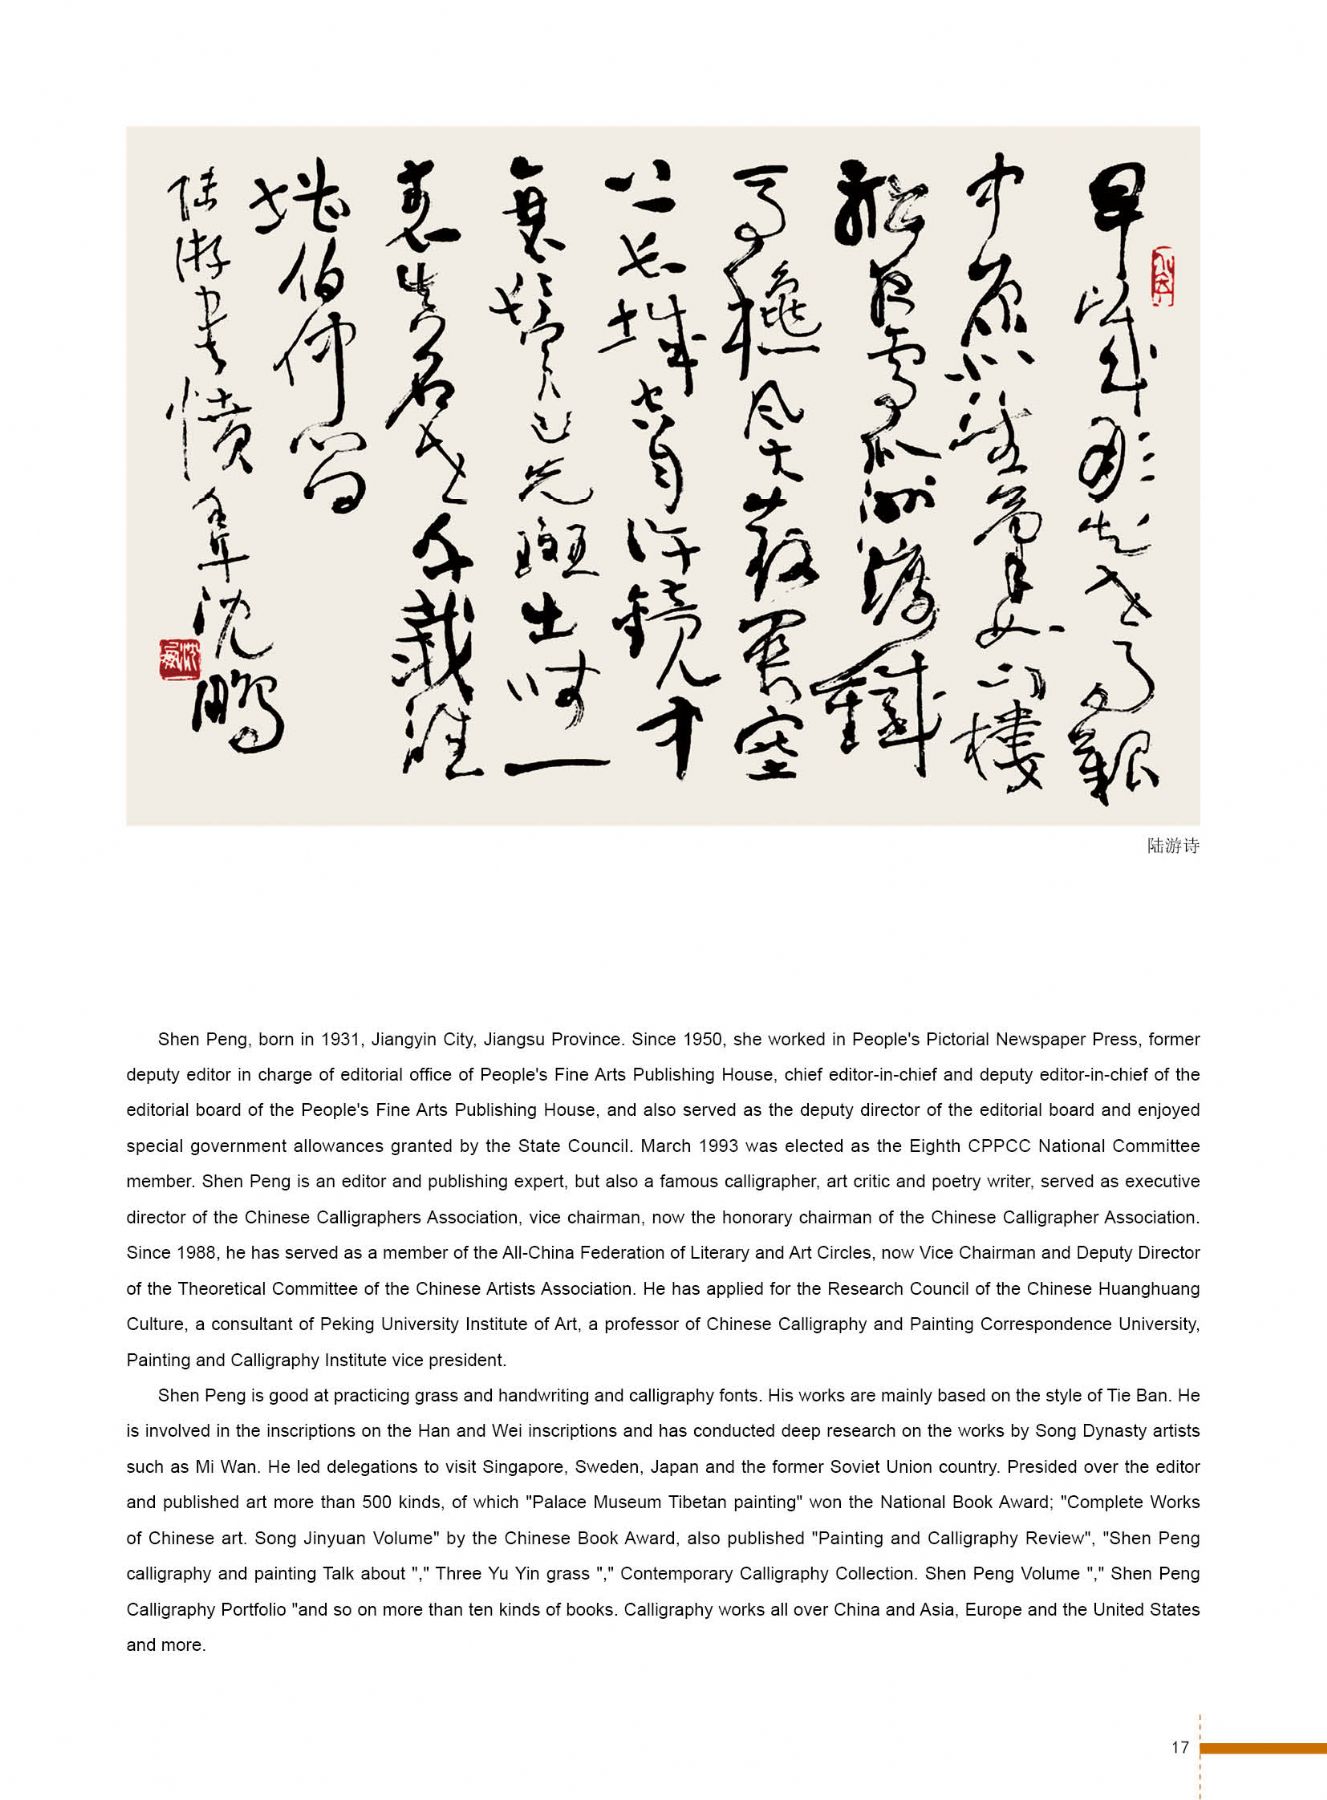 早歲那知世事艱
中原北望氣如山樓
船夜雪瓜洲渡鐵
馬穐風大散關塞
上長城空自許鏡中
衰鬢已先斑出師一
表真名世千載誰
堪伯仲間
陸游書憤 沈鵬
沈鵬
陆游诗
Shen Peng, born in 1931, Jiangyin City, Jiangsu Province. Since 1950, she worked in People's Pictorial Newspaper Press, former
deputy editor in charge of editorial office of People's Fine Arts Publishing House, chief editor-in-chief and deputy editor-in-chief of the
editorial board of the People's Fine Arts Publishing House, and also served as the deputy director of the editorial board and enjoyed
special government allowances granted by the State Council. March 1993 was elected as the Eighth CPPCC National Committee
member. Shen Peng is an editor and publishing expert, but also a famous calligrapher, art critic and poetry writer, served as executive
director of the Chinese Calligraphers Association, vice chairman, now the honorary chairman of the Chinese Calligrapher Association.
Since 1988, he has served as a member of the All-China Federation of Literary and Art Circles, now Vice Chairman and Deputy Director
of the Theoretical Committee of the Chinese Artists Association. He has applied for the Research Council of the Chinese Huanghuang
Culture, a consultant of Peking University Institute of Art, a professor of Chinese Calligraphy and Painting Correspondence University,
Painting and Calligraphy Institute vice president.
Shen Peng is good at practicing grass and handwriting and calligraphy fonts. His works are mainly based on the style of Tie Ban. He
is involved in the inscriptions on the Han and Wei inscriptions and has conducted deep research on the works by Song Dynasty artists
such as Mi Wan. He led delegations to visit Singapore, Sweden, Japan and the former Soviet Union country. Presided over the editor
and published art more than 500 kinds, of which "Palace Museum Tibetan painting" won the National Book Award; "Complete Works
of Chinese art. Song Jinyuan Volume" by the Chinese Book Award, also published "Painting and Calligraphy Review", "Shen Peng
calligraphy and painting Talk about "," Three Yu Yin grass "," Contemporary Calligraphy Collection. Shen Peng Volume "," Shen Peng
Calligraphy Portfolio "and so on more than ten kinds of books. Calligraphy works all over China and Asia, Europe and the United States
and more.
17